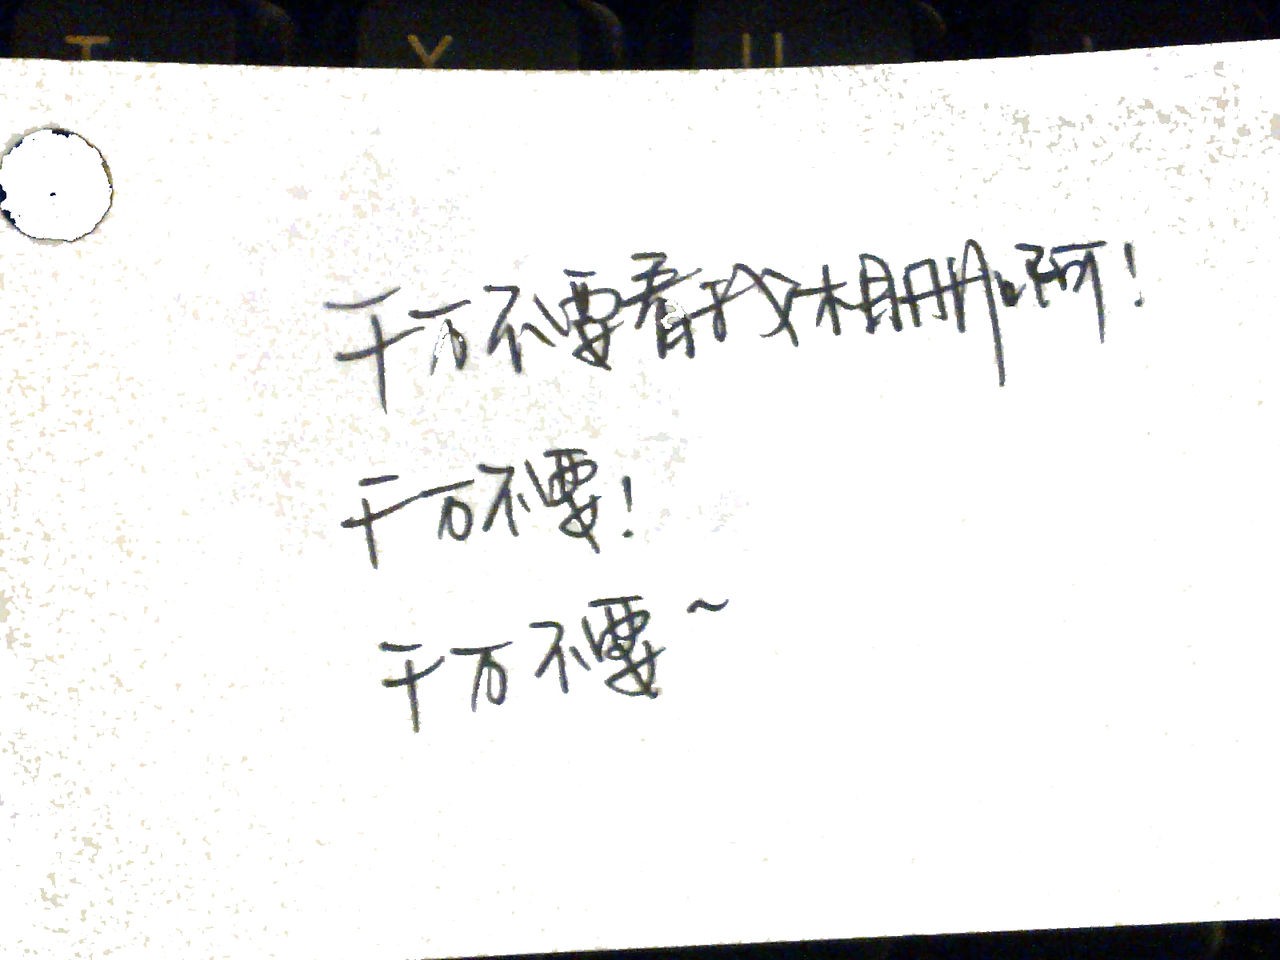 T Y U
千万不要看我相册啊！
千万不要！
千万不要~